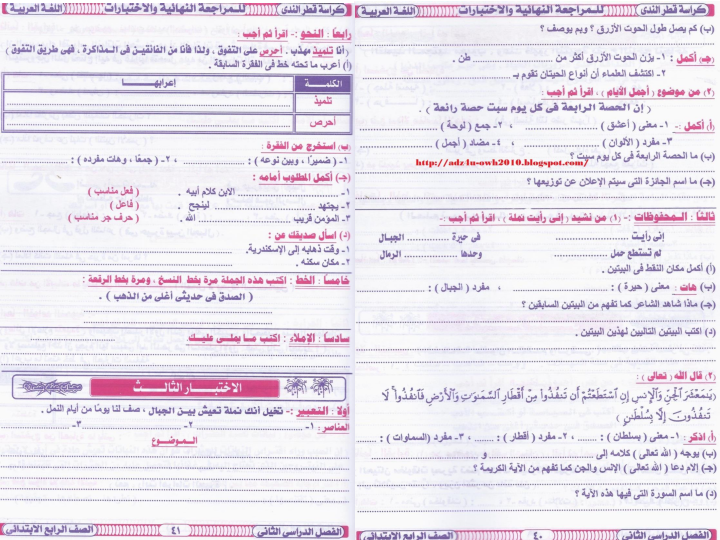 كراسة قطر الندى للمراجعة النهائية والاختبارات اللغة العربية
(ب) كم يصل طول الحوت الأزرق ؟ وبم يوصف ؟
(جـ) أكمل : ١- يزن الحوت الأزرق أكثر من .................. طن .
٢- اكتشف العلماء أن أنواع الحيتان تقوم بـ ..................
(٢) من موضوع ( أجمل الأيام ) ، اقرأ ثم أجب :
( إن الحصة الرابعة فى كل يوم سبت حصة رائعة ) .
(أ) أكمل :- ١- معنى ( أعشق ) .................. ، ٢- جمع ( لوحة ) ..................
٣- مفرد ( الألوان ) .................. ، ٤- مضاد ( أجمل ) ..................
(ب) ما الحصة الرابعة فى كل يوم سبت ؟
http://adz4u-owh2010.blogspot.com/
(جـ) ما اسم الجائزة التى سيتم الإعلان عن توزيعها ؟
ثالثاً : المحفوظات :- (١) من نشيد ( إنى رأيت نملة ) ، اقرأ ثم أجب :-
إنى رأيت .................. فى حيرة .................. الجبال
لم تستطع حمل .................. وحدها .................. الرمال
(أ) أكمل مكان النقط فى البيتين .
(ب) هات : معنى ( حيرة ) : .................. ، مفرد ( الجبال ) : ..................
(جـ) ماذا شاهد الشاعر كما تفهم من البيتين السابقين ؟
(د) اكتب البيتين التاليين لهذين البيتين .
(٢) قال الله ( تعالى ) :
(يَـٰمَعْشَرَ ٱلْجِنِّ وَٱلْإِنسِ إِنِ ٱسْتَطَعْتُمْ أَن تَنفُذُوا۟ مِنْ أَقْطَارِ ٱلسَّمَـٰوَٰتِ وَٱلْأَرْضِ فَٱنفُذُوا۟ ۚ لَا
تَنفُذُونَ إِلَّا بِسُلْطَـٰنٍ )
(أ) اذكر : ١- معنى ( بسلطان ) : ........ ، ٢- مفرد ( أقطار ) : ........ ، ٣- مفرد ( السماوات ) : ........
(ب) يوجه ( الله تعالى ) كلامه إلى .................. و ..................
(جـ) إلام دعا ( الله تعالى ) الإنس والجن كما تفهم من الآية الكريمة ؟
(د) ما اسم السورة التى فيها هذه الآية ؟
الفصل الدراسى الثانى ٤٠ الصف الرابع الابتدائى
كراسة قطر الندى للمراجعة النهائية والاختبارات اللغة العربية
رابعاً : النحو :- اقرأ ثم أجب :
( أنا تلميذ مهذب . أحرص على التفوق . ولذا فأنا من الفائقين فى المذاكرة ، فهى طريق التفوق )
(أ) أعرب ما تحته خط فى الفقرة السابقة .
الكلمة إعرابها
تلميذ
أحرص
(ب) استخرج من الفقرة :
١- ( ضميرًا ، وبين نوعه ) : .................. ، ٢- ( جمعًا ، وهات مفرده ) : ..................
(جـ) أكمل المطلوب أمامه :
١- .................. الابن كلام أبيه . ( فعل مناسب )
٢- يجتهد .................. لينجح . ( فاعل )
٣- المؤمن قريب .................. الله . ( حرف جر مناسب )
(د) اسأل صديقك عن :
١- وقت ذهابه إلى الإسكندرية.
٢- مكان سكنه .
خامساً : الخط : اكتب هذه الجملة مرة بخط النسخ ، ومرة بخط الرقعة :
( الصدق فى حديثى أغلى من الذهب ) .
سادساً : الإملاء : اكتب ما يملى عليك.
الاختبار الثالث
أولاً : التعبير :- تخيل أنك نملة تعيش بين الجبال ، صف لنا يومًا من أيام النمل .
العناصر : ١- .................. ٢- .................. ٣- ..................
الموضوع
الفصل الدراسى الثانى ٤١ الصف الرابع الابتدائى